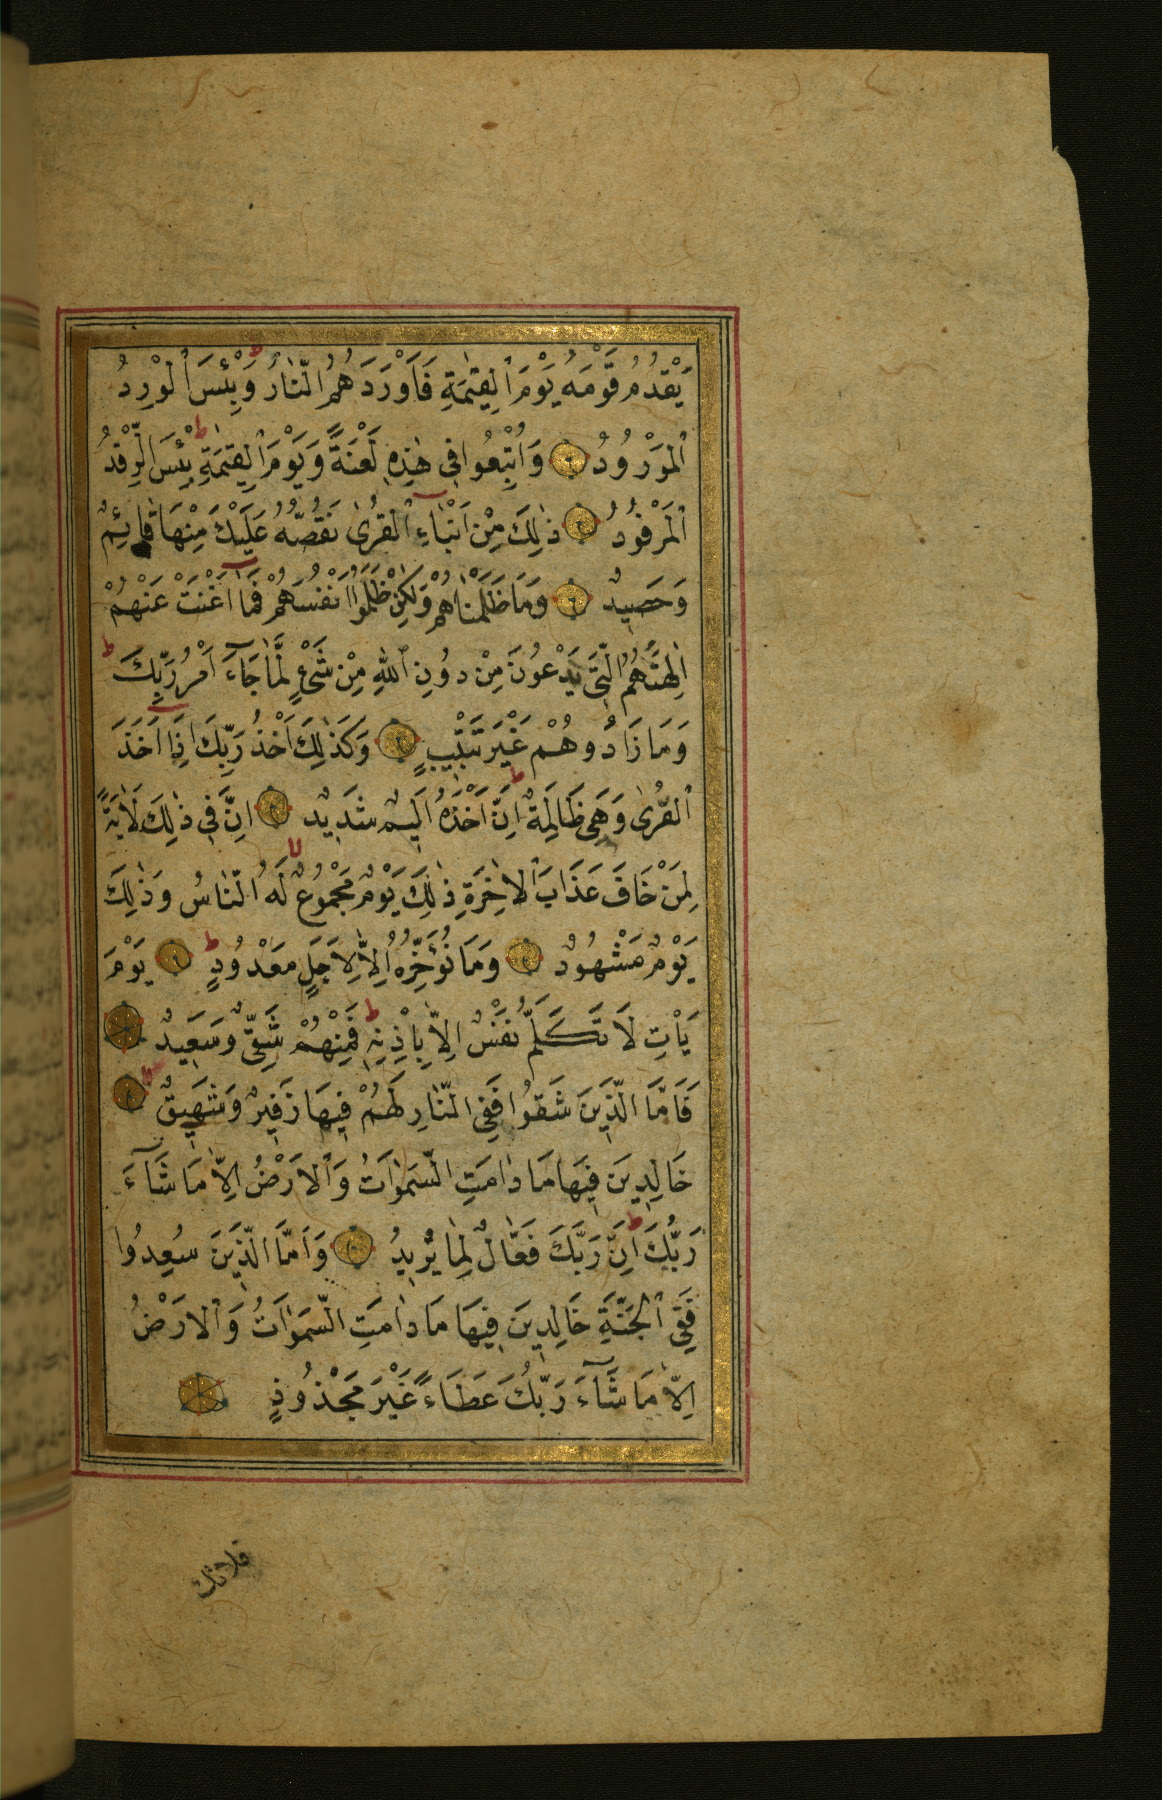 يَقْدُمُ قَوْمَهُ يَوْمَ الْقِيٰمَةِ فَاَوْرَدَهُمُ النَّارَ ط وَبِئْسَ الْوِرْدُ
الْمَوْرُودُ وَاُتْبِعُوا فِي هٰذِهِ لَعْنَةً وَيَوْمَ الْقِيٰمَةِ ط بِئْسَ الرِّفْدُ
الْمَرْفُودُ ذٰلِكَ مِنْ اَنْبَاءِ الْقُرٰى نَقُصُّهُ عَلَيْكَ مِنْهَا قَائِمٌ
وَحَصِيدٌ وَمَا ظَلَمْنَاهُمْ وَلٰكِنْ ظَلَمُوا اَنْفُسَهُمْ فَمَا اَغْنَتْ عَنْهُمْ
اٰلِهَتُهُمُ الَّتِي يَدْعُونَ مِنْ دُونِ اللهِ مِنْ شَيْءٍ لَمَّا جَآءَ اَمْرُ رَبِّكَ ط
وَمَا زَادُوهُمْ غَيْرَ تَتْبِيبٍ وَكَذٰلِكَ اَخْذُ رَبِّكَ اِذَا اَخَذَ
الْقُرٰى وَهِيَ ظَالِمَةٌ ط اِنَّ اَخْذَهُ اَلِيمٌ شَدِيدٌ اِنَّ فِي ذٰلِكَ لَاٰيَةً
لِمَنْ خَافَ عَذَابَ الْاٰخِرَةِ ذٰلِكَ يَوْمٌ مَجْمُوعٌ لا لَهُ النَّاسُ وَذٰلِكَ
يَوْمٌ مَشْهُودٌ وَمَا نُؤَخِّرُهُ اِلَّا لِاَجَلٍ مَعْدُودٍ ط يَوْمَ
يَاْتِ لَا تَكَلَّمُ نَفْسٌ اِلَّا بِاِذْنِهِ ط فَمِنْهُمْ شَقِيٌّ وَسَعِيدٌ
فَاَمَّا الَّذِينَ شَقُوا فَفِي النَّارِ لَهُمْ فِيهَا زَفِيرٌ وَشَهِيقٌ لا
خَالِدِينَ فِيهَا مَا دَامَتِ السَّمٰوَاتُ وَالْاَرْضُ اِلَّا مَا شَآءَ
رَبُّكَ ط اِنَّ رَبَّكَ فَعَّالٌ لِمَا يُرِيدُ وَاَمَّا الَّذِينَ سُعِدُوا
فَفِي الْجَنَّةِ خَالِدِينَ فِيهَا مَا دَامَتِ السَّمٰوَاتُ وَالْاَرْضُ
اِلَّا مَا شَآءَ رَبُّكَ عَطَاءً غَيْرَ مَجْذُوذٍ
فلا تك